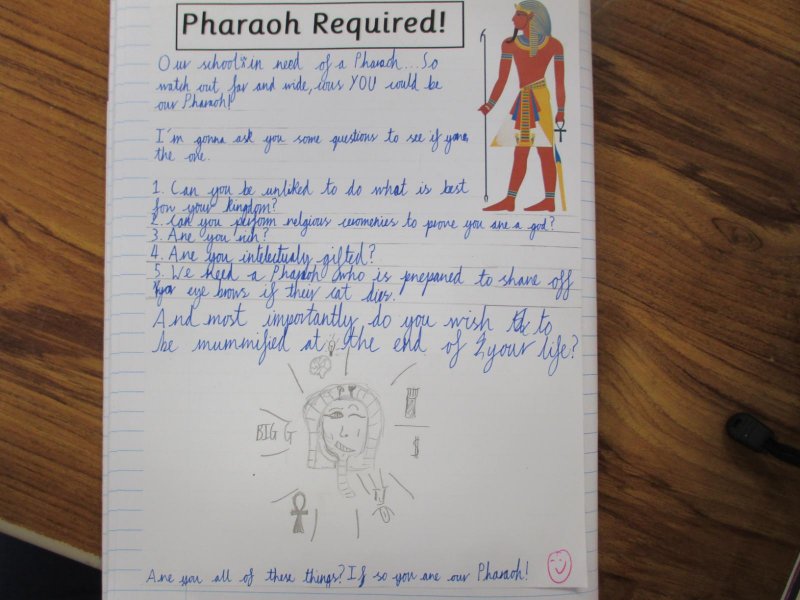 Pharaoh Required!
Our school's in need of a Pharaoh... So
watch out far and wide, cous YOU could be
our Pharaoh!
I'm gonna ask you some questions to see if your
the one.
1. Can you be unliked to do what is best
for your kingdom?
2. Can you perform religious ceromenies to prove you are a god?
3. Are you rich?
4. Are you intelectualy gifted?
5. We need a Pharaoh who is prepared to shave off
eye brows if their cat dies.
And most importantly do you wish to
be mummified at the end of your life?
BIG G
$
Are you all of these things? If so you are our Pharaoh!